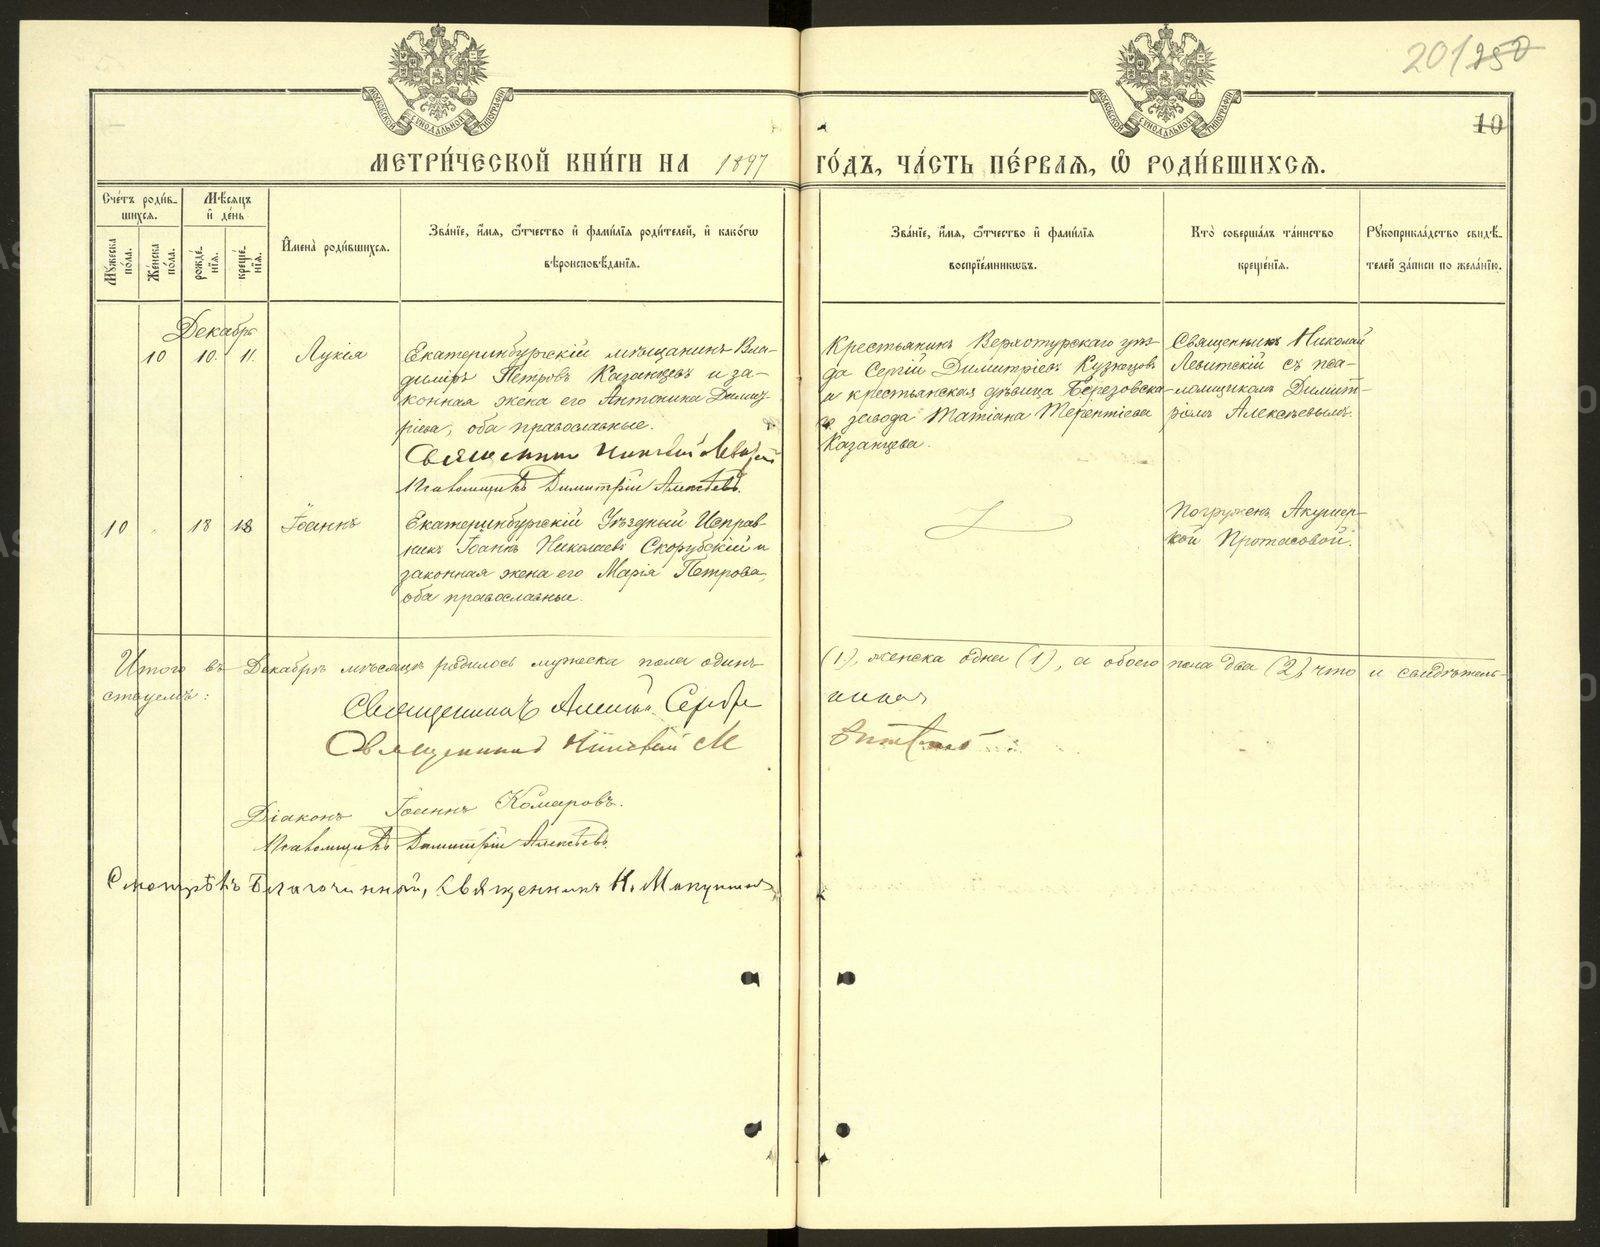 201/250
10
МОСКОВСКОЙ СѴНОДАЛЬНОЙ ТИПОГРАФІИ
МОСКОВСКОЙ СѴНОДАЛЬНОЙ ТИПОГРАФІИ
МЕТРИ́ЧЕСКОЙ КНИ́ГИ НА 1897 ГО́ДЪ, ЧА́СТЬ ПЕ́РВАѦ, Ѡ҆ РОДИ́ВШИХСѦ.
Сче́тъ роди́в-
шихсѧ.
Мꙋ́жеска по́ла.
Же́нска по́ла.
Мѣ́сѧцъ и҆ де́нь
рожде́нїѧ.
креще́нїѧ.
И҆мена̀ роди́вшихсѧ.
Зва́нїе, и҆́мѧ, ѻ҆́тчество и҆ фами́лїѧ роди́телей, и҆ како́гѡ
вѣроисповѣ́данїѧ.
Зва́нїе, и҆́мѧ, ѻ҆́тчество и҆ фами́лїѧ
воспрїе́мникѡвъ.
Кто̀ соверша́лъ та́инство
креще́нїѧ.
Рꙋкоприкла́дство свидѣ́-
телей за́писи по жела́нїю.
Декабрь
10 10. 11. Лукія
Екатеринбургскій мѣщанинъ Вла-
диміръ Петровъ Казанцевъ и за-
конная жена его Антонина Димит-
ріева, оба православные.
Священникъ Николай Левитскій
Псаломщикъ Димитрій Алексѣевъ.
Крестьянинъ Верхотурскаго уѣз-
да Сергій Димитріевъ Кузнецовъ
и крестьянская дѣвица Березовска-
го завода Татіана Терентіева
Казанцева.
Священникъ Николай
Левитскій съ пса-
ломщикомъ Димит-
ріемъ Алексѣевымъ.
10 " 18 18 Іоаннъ
Екатеринбургскій Уѣздный Исправ-
никъ Іоаннъ Николаевъ Скорубскій и
законная жена его Марія Петрова,
оба православные.
Погруженъ Акушер-
кой Протасовой.
Итого въ Декабрѣ мѣсяцѣ родилось мужеска пола одинъ (1), женска одна (1), а обоего пола два (2), что и свидѣтель-
ствуемъ:
Священникъ
Священникъ Николай Левитскій
Діаконъ Іоаннъ Комаровъ.
Псаломщикъ Димитрій Алексѣевъ.
Смотрѣлъ Благочинный, Священникъ Н.